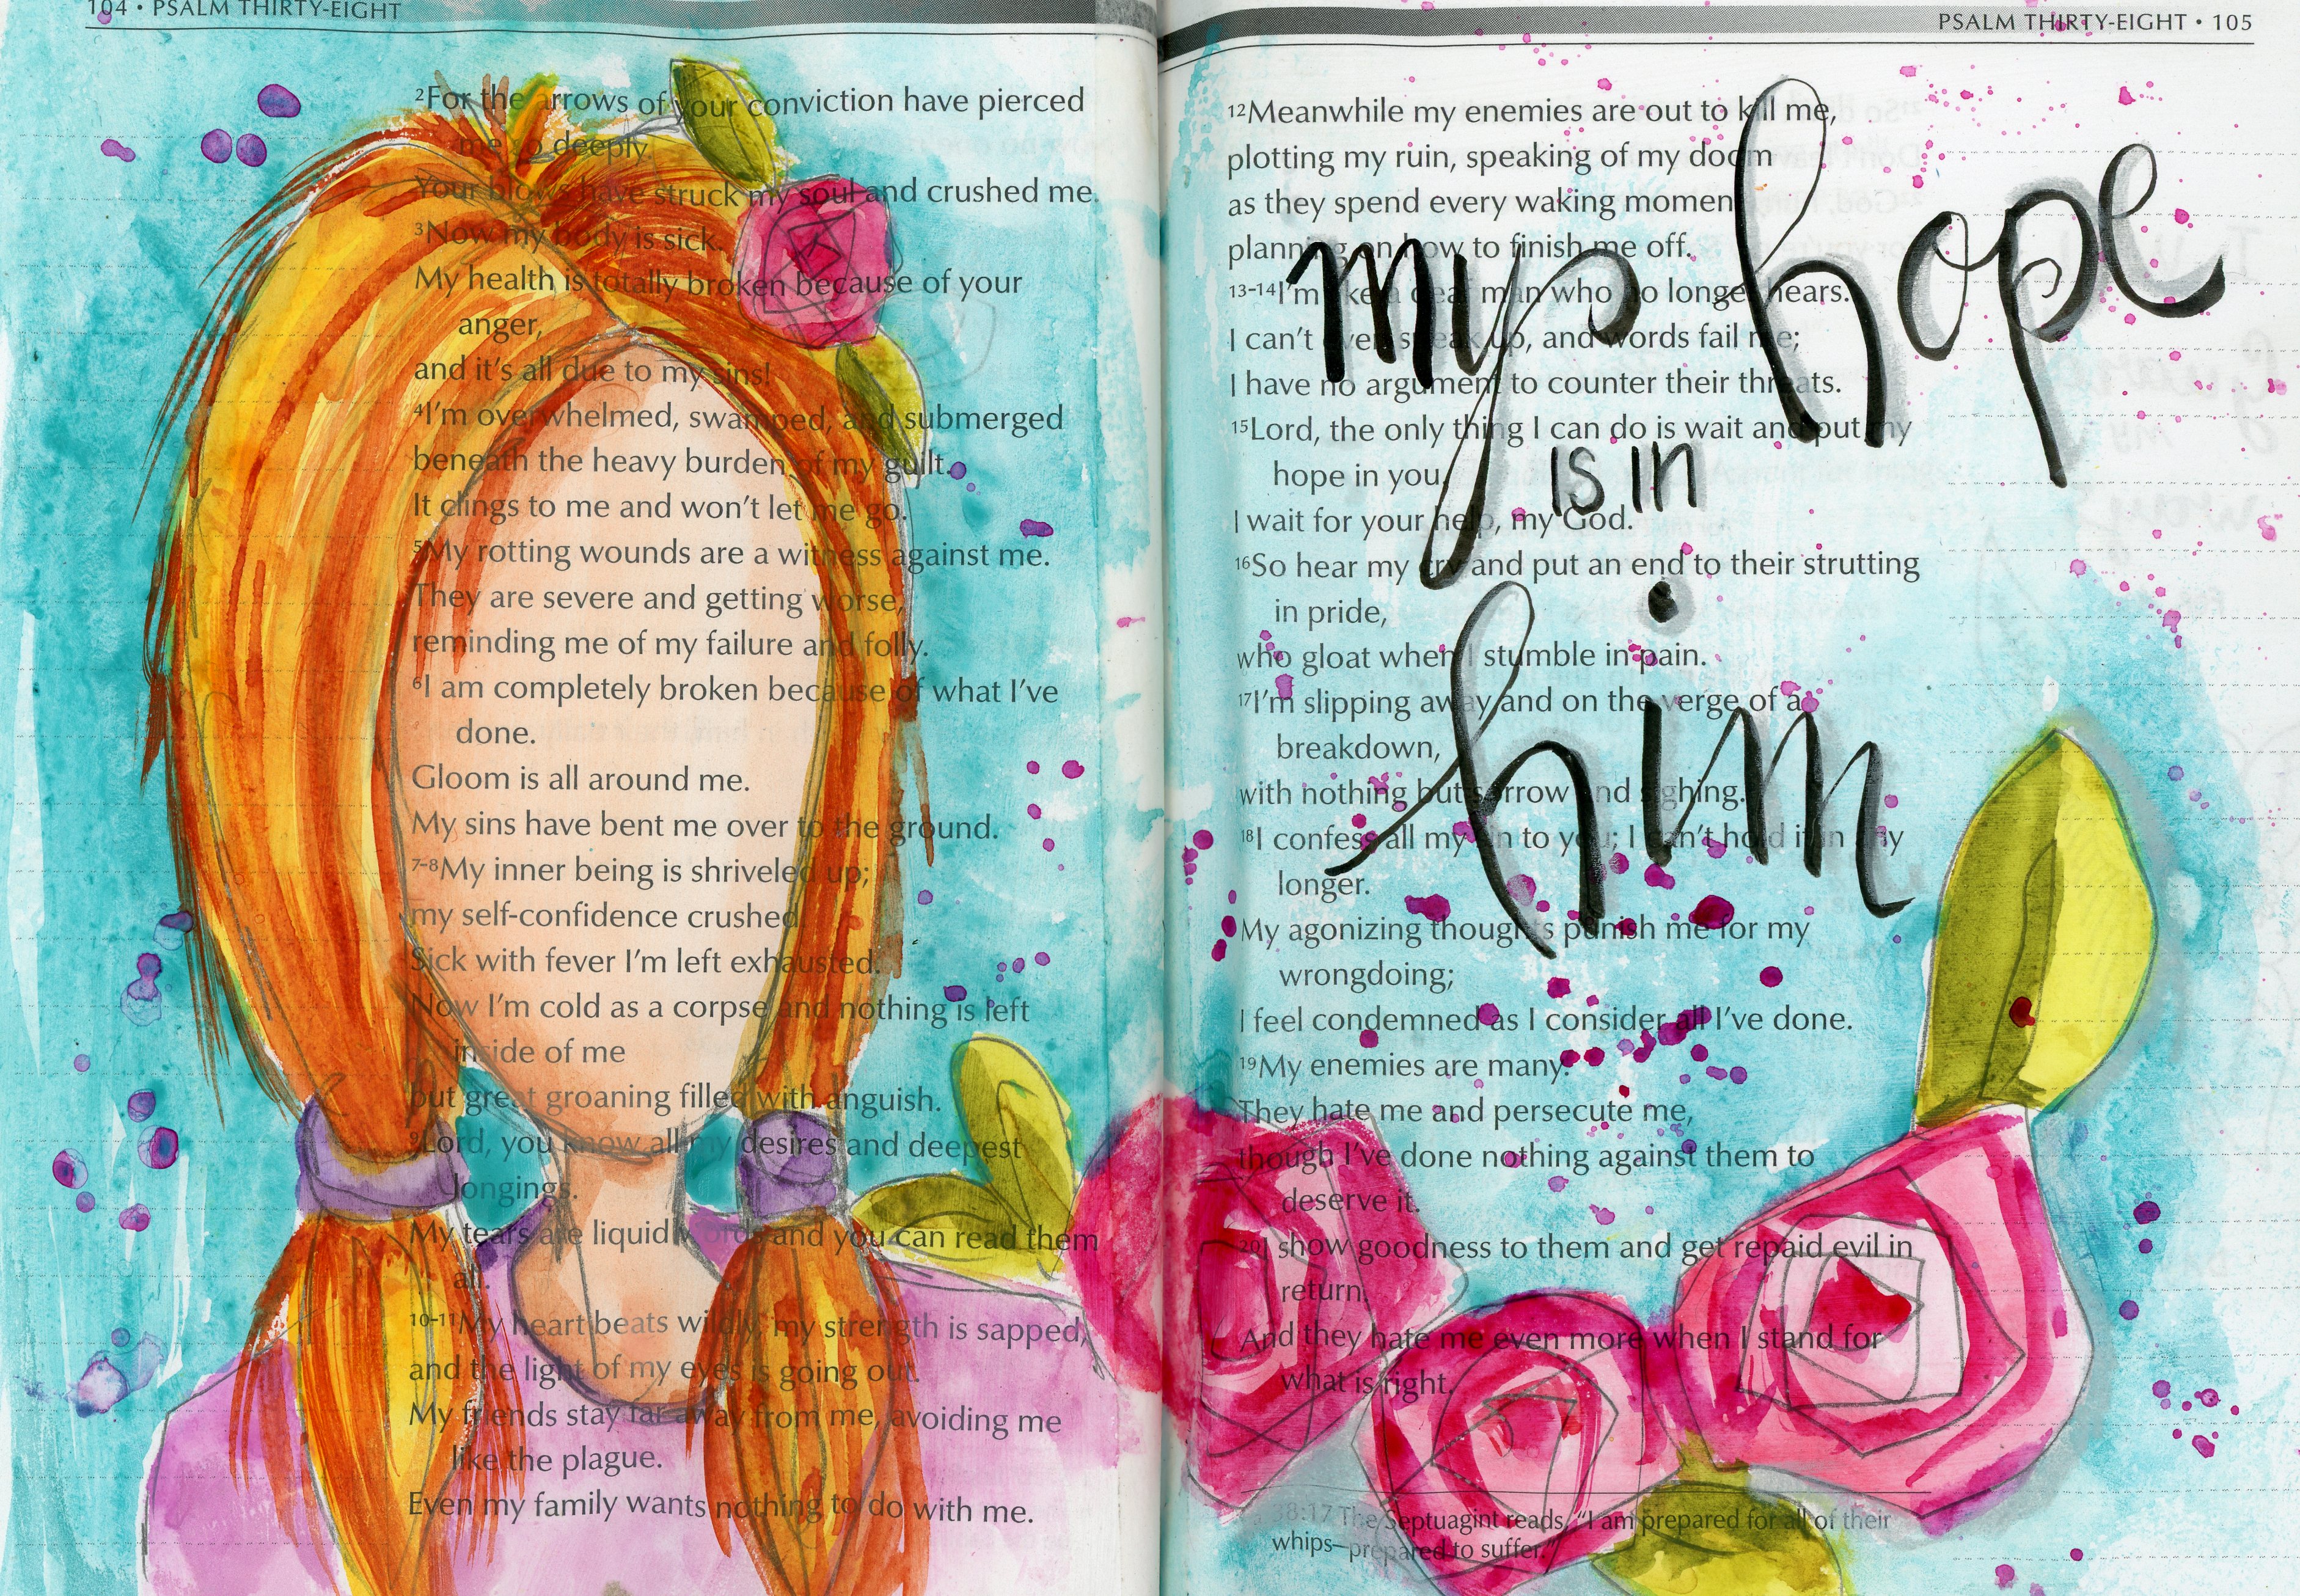 104 • PSALM THIRTY-EIGHT
²For the arrows of your conviction have pierced
me so deeply.
Your blows have struck my soul and crushed me.
³Now my body is sick.
My health is totally broken because of your
anger,
and it's all due to my sins!
⁴I'm overwhelmed, swamped, and submerged
beneath the heavy burden of my guilt.
It clings to me and won't let me go.
⁵My rotting wounds are a witness against me.
They are severe and getting worse,
reminding me of my failure and folly.
⁶I am completely broken because of what I've
done.
Gloom is all around me.
My sins have bent me over to the ground.
⁷⁻⁸My inner being is shriveled up;
my self-confidence crushed.
Sick with fever I'm left exhausted.
Now I'm cold as a corpse and nothing is left
inside of me
but great groaning filled with anguish.
⁹Lord, you know all my desires and deepest
longings.
My tears are liquid words and you can read them
all.
¹⁰⁻¹¹My heart beats wildly, my strength is sapped,
and the light of my eyes is going out.
My friends stay far away from me, avoiding me
like the plague.
Even my family wants nothing to do with me.
PSALM THIRTY-EIGHT • 105
¹²Meanwhile my enemies are out to kill me,
plotting my ruin, speaking of my doom
as they spend every waking moment
planning on how to finish me off.
¹³⁻¹⁴I'm like a deaf man who no longer hears.
I can't even speak up, and words fail me;
I have no argument to counter their threats.
¹⁵Lord, the only thing I can do is wait and put my
hope in you.
I wait for your help, my God.
¹⁶So hear my cry and put an end to their strutting
in pride,
who gloat when I stumble in pain.
¹⁷I'm slipping away and on the verge of a
breakdown,
with nothing but sorrow and sighing.
¹⁸I confess all my sin to you; I can't hold it in any
longer.
My agonizing thoughts punish me for my
wrongdoing;
I feel condemned as I consider all I've done.
¹⁹My enemies are many.
They hate me and persecute me,
though I've done nothing against them to
deserve it.
²⁰I show goodness to them and get repaid evil in
return.
And they hate me even more when I stand for
what is right.
38:17 The Septuagint reads, "I am prepared for all of their
whips–prepared to suffer."
my hope
is in
him